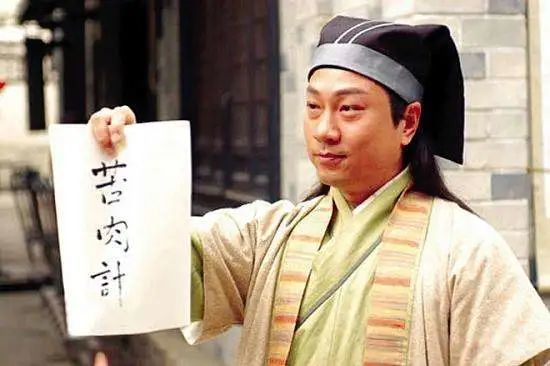 苦肉計